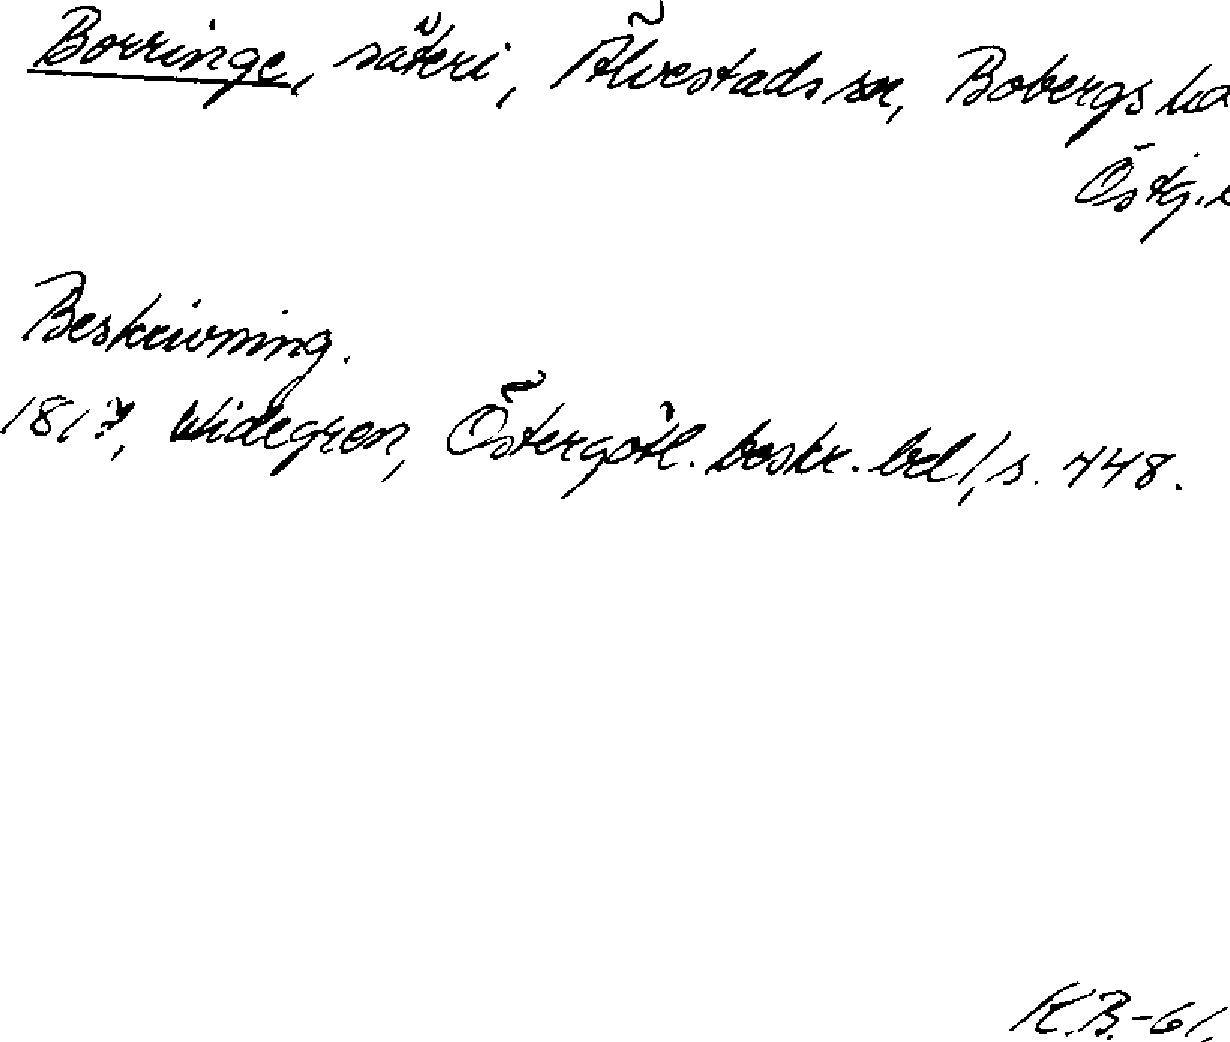 Borringe, säteri, Älvestads sn, Bobergs hd
Östg.
Beskrivning.
1817, Widegren, Östergötl. beskr. bd 1, s. 448.
K.B.-61.